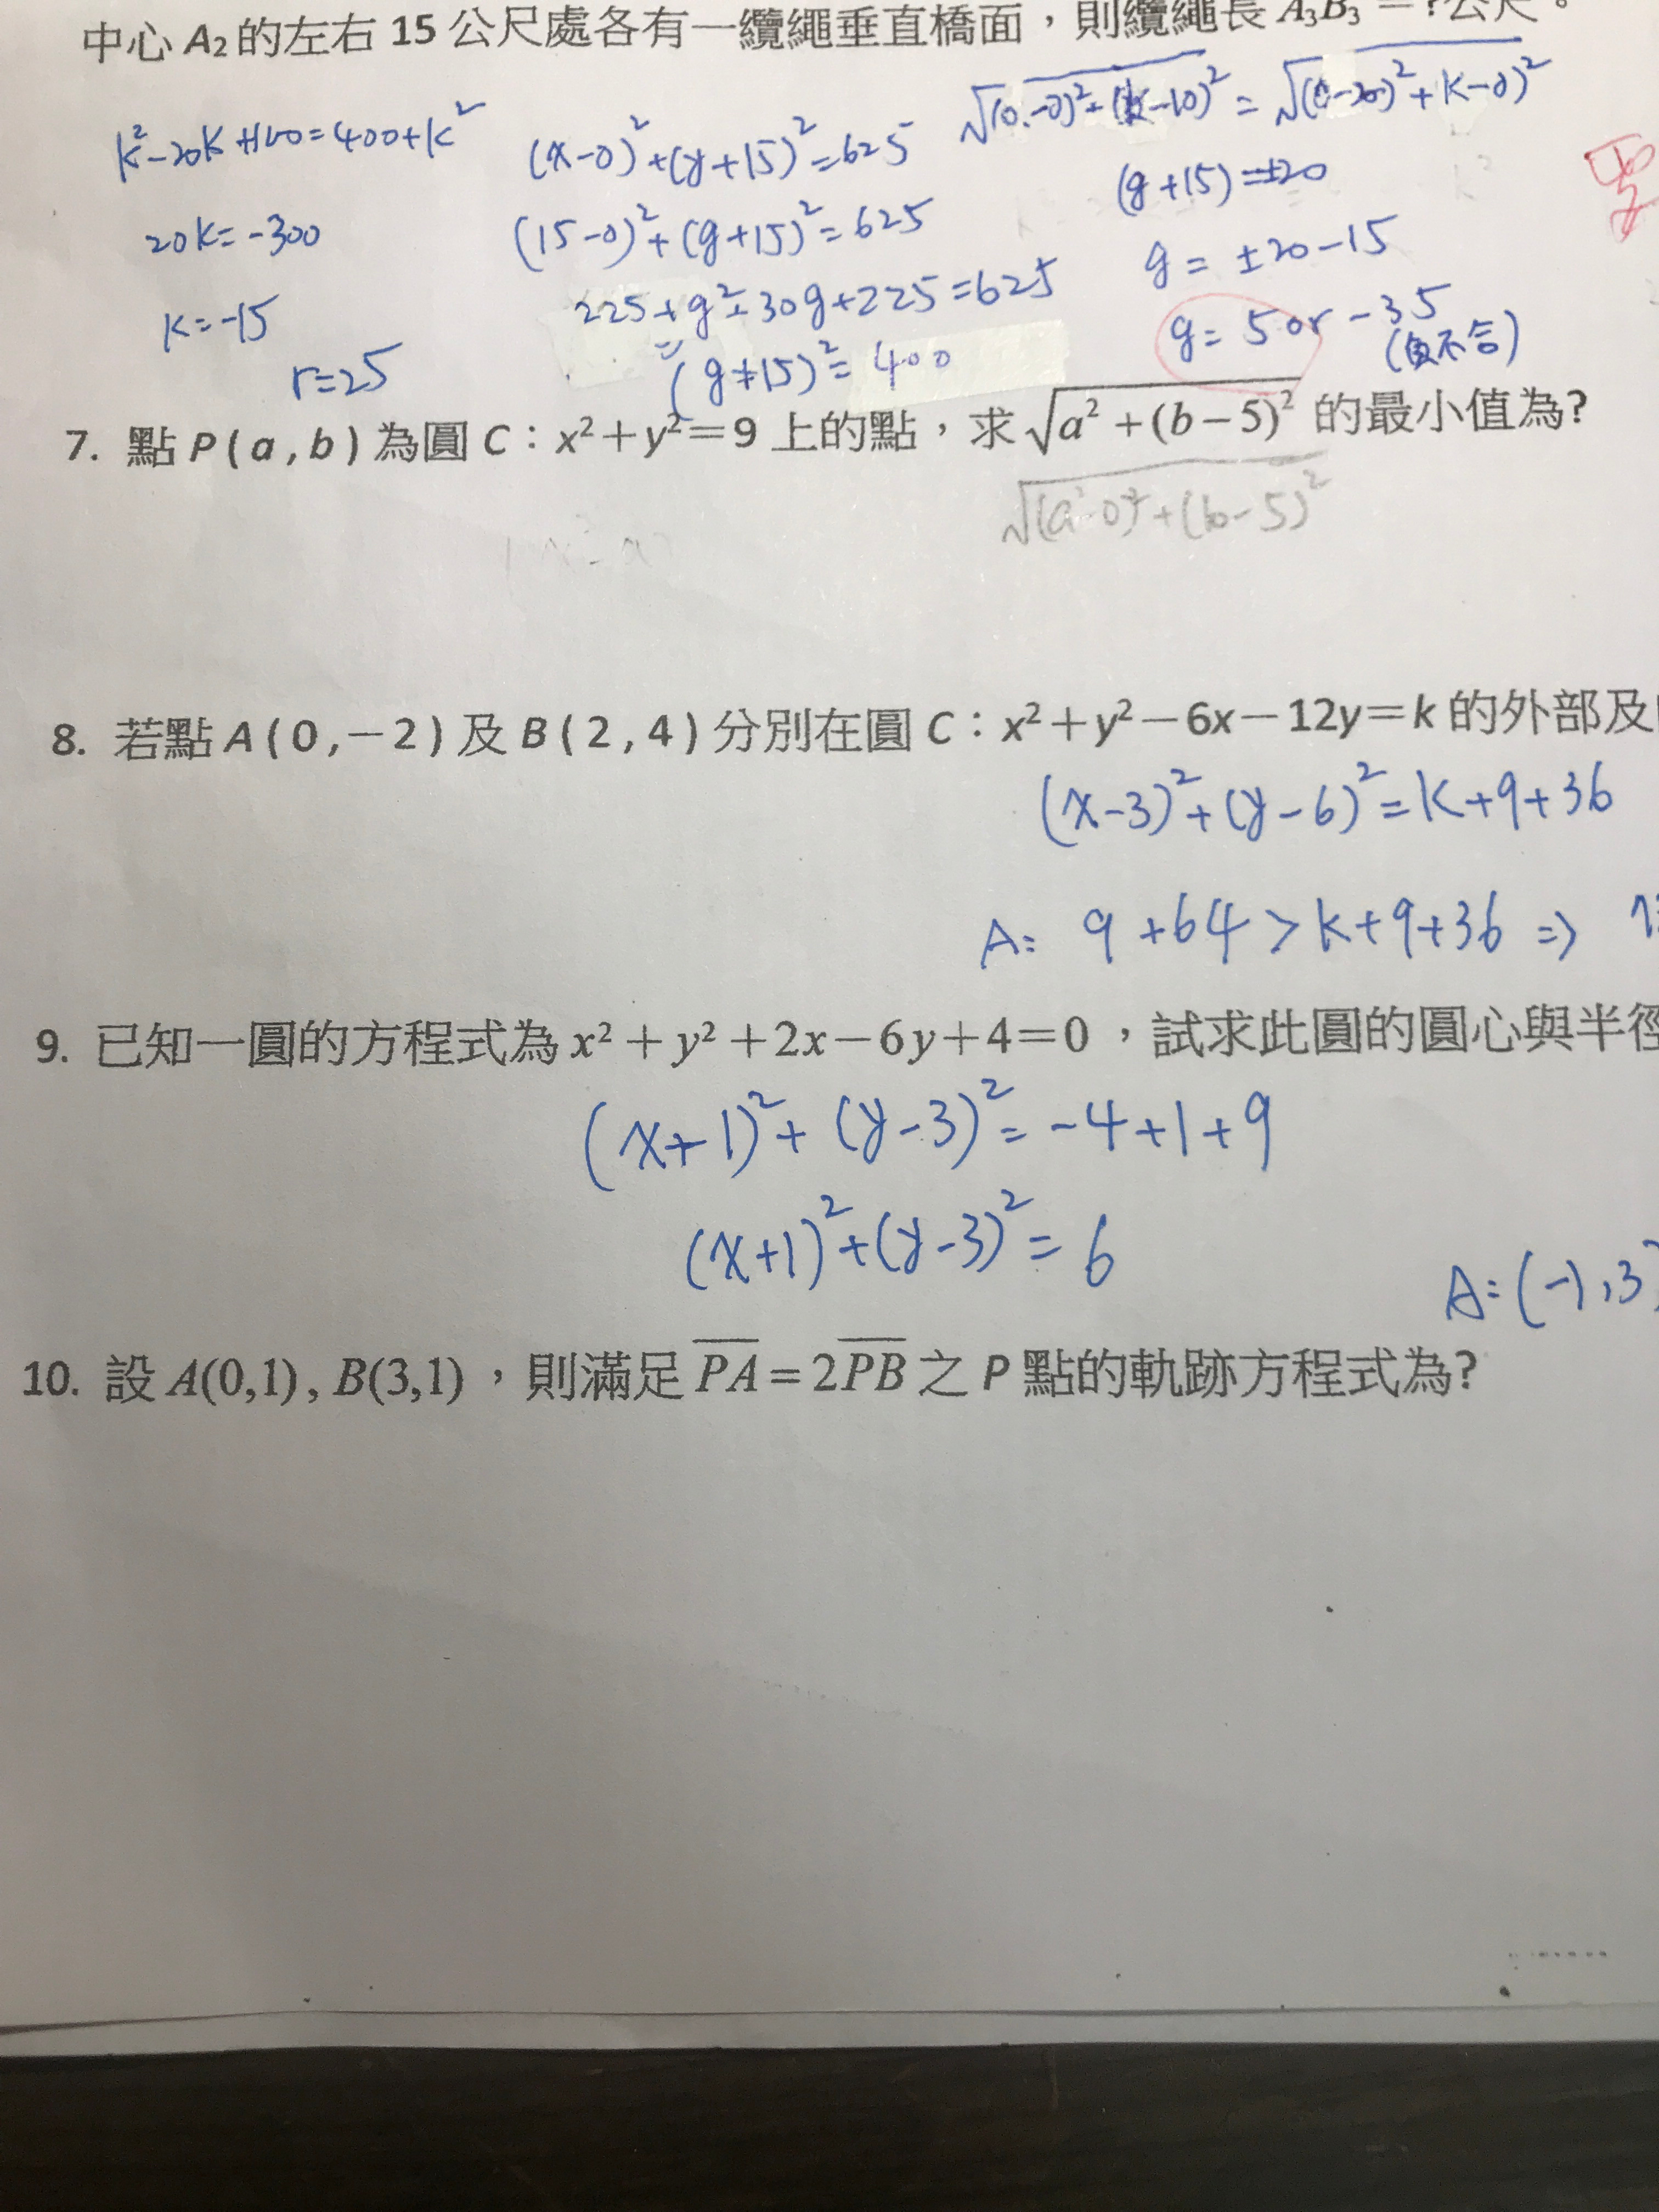 中心 A₂ 的左右 15 公尺處各有一纜繩垂直橋面，則纜繩長 A₃B₃ = ?公尺。
k²-20k+100=400+k²
(x-0)²+(y+15)²=625
√(0-0)²+(k-10)² = √(0-20)²+(k-0)²
20k=-300
(15-0)²+(y+15)²=625
(y+15)=±20
k=-15
225+y²+30y+225=625
y=±20-15
r=25
(y+15)²=400
y=5 or -35
(負不合)
7. 點 P(a,b) 為圓 C：x²+y²=9 上的點，求 √a²+(b-5)² 的最小值為?
√(a-0)²+(b-5)²
8. 若點 A(0,-2) 及 B(2,4) 分別在圓 C：x²+y²-6x-12y=k 的外部及
(x-3)²+(y-6)²=k+9+36
A: 9+64>k+9+36 ⇒
9. 已知一圓的方程式為 x²+y²+2x-6y+4=0，試求此圓的圓心與半徑
(x+1)²+(y-3)²=-4+1+9
(x+1)²+(y-3)²=6
A:(-1,3)
10. 設 A(0,1), B(3,1)，則滿足 PA=2PB 之 P 點的軌跡方程式為?